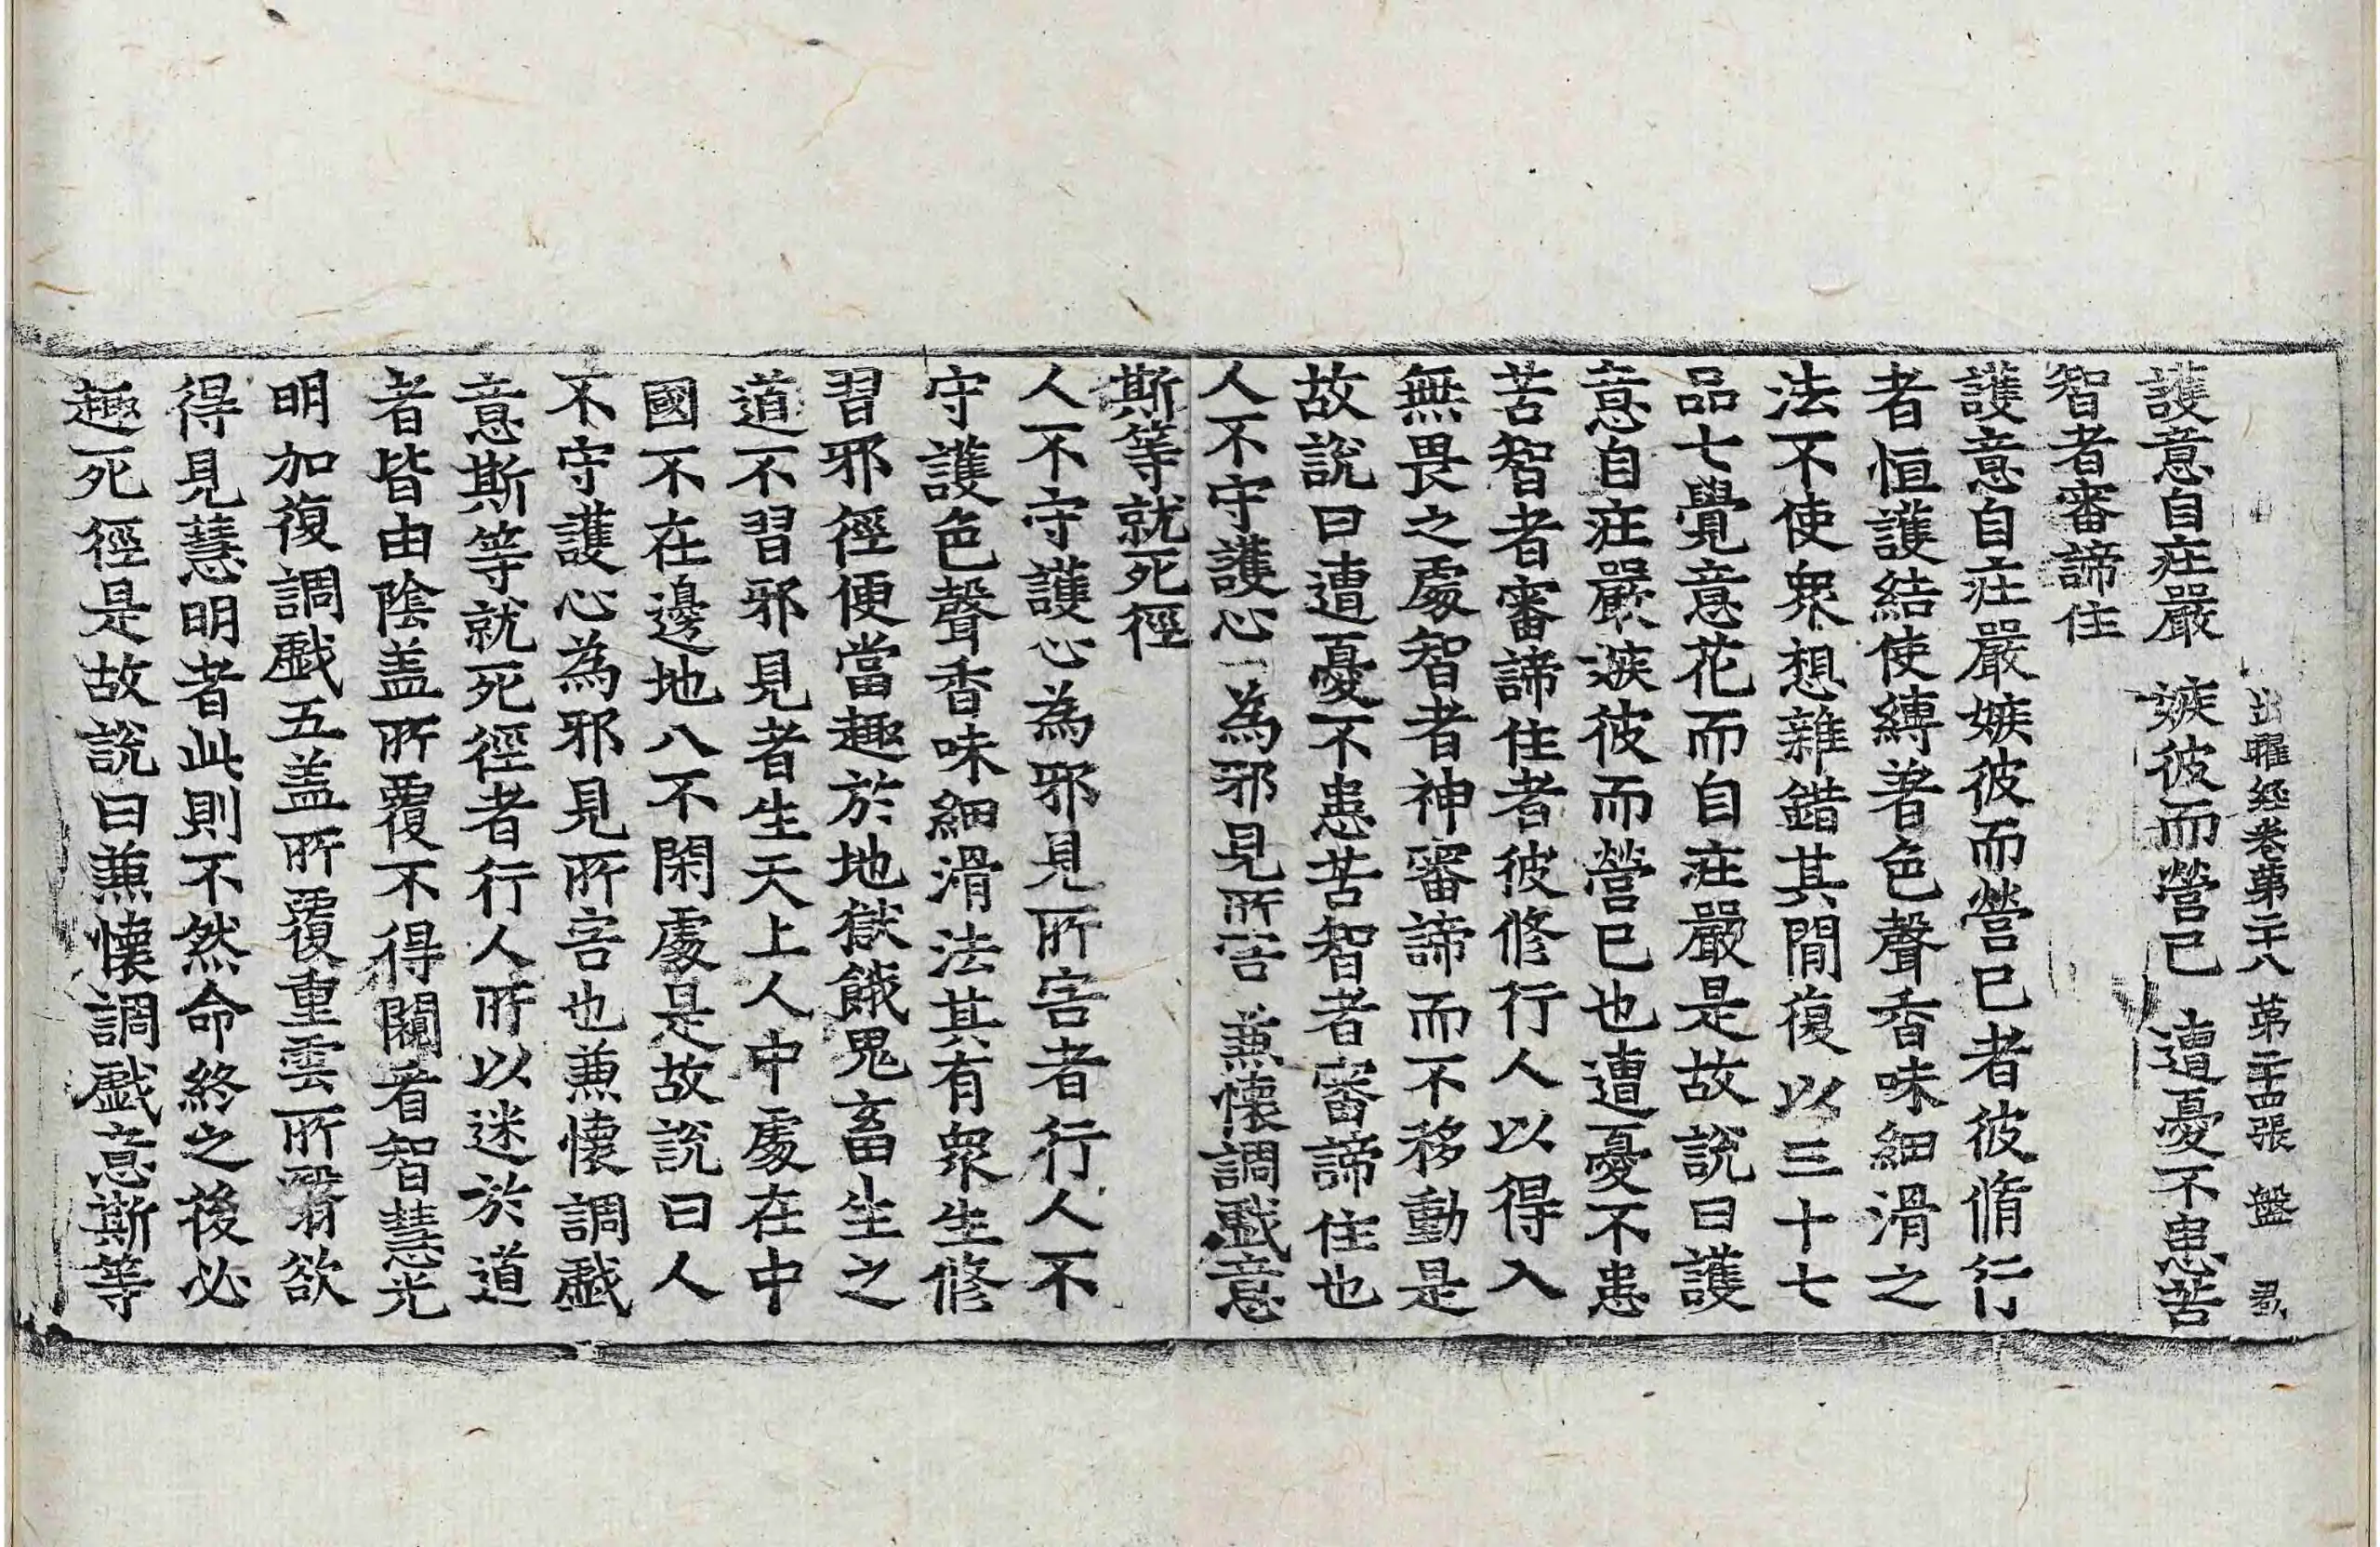 出曜經卷第二十八　第二十四張　盤
護意自庄嚴　嫉彼而營己　遭憂不患苦
智者審諦住
護意自庄嚴嫉彼而營已者彼脩行
者恒護結使縛著色聲香味細滑之
法不使衆想雜錯其閒復以三十七
品七覺意花而自庄嚴是故說曰護
意自庄嚴嫉彼而營已也遭憂不患
苦智者審諦住者彼修行人以得入
無畏之處智者神審諦而不移動是
故說曰遭憂不患苦智者審諦住也
人不守護心　為邪見所害　兼懷調戲意
斯等就死徑
人不守護心為邪見所害者行人不
守護色聲香味細滑法其有衆生修
習邪徑便當趣於地獄餓鬼畜生之
道不習邪見者生天上人中處在中
國不在邊地八不閑處是故說曰人
不守護心為邪見所害也兼懷調戲
意斯等就死徑者行人所以迷於道
者皆由陰盖所覆不得闚看智慧光
明加復調戲五盖所覆重雲所翳欲
得見慧明者此則不然命終之後必
趣死徑是故說曰兼懷調戲意斯等